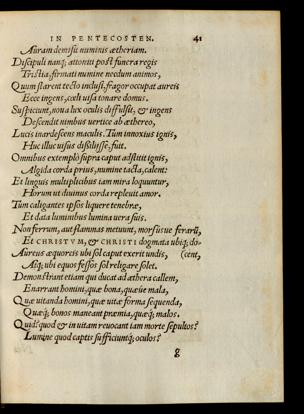 IN PENTECOSTEN. 41
Auram demisit numinis ætheriam.
Discipuli nanq; attoniti post funera regis
Tristia, firmati numine needum animos,
Quum starent tecto inclusi, fragor occupat aureis
Ecce ingens, cœli uisa tonare domus.
Suspiciunt, noua lux oculis diffulsit, & ingens
Descendit nimbus uertice ab æthereo,
Lucis inardescens maculis. Tum innoxius ignis,
Huc illuc uisus dissiluisse, fuit.
Omnibus extemplo supra caput adstitit ignis,
Algida corda prius, numine tacta, calent:
Et linguis multiplicibus tam mira loquuntur,
Horum ut diuinus corda repleuit amor.
Tum caligantes ipsos liquere tenebræ,
Et data luminibus lumina uera suis.
Non ferrum, aut flammas metuunt, morsusue ferarū,
Et CHRISTVM, & CHRISTI dogmata ubiq; do-
Aureus æquoreis ubi sol caput exerit undis, (cent,
Atq; ubi equos fessos sol religare solet.
Demonstrant etiam qui ducat ad æthera callem,
Enarrant homini, quæ bona, quæue mala,
Quæ uitanda homini, quæ uitæ forma sequenda,
Quæq; bonos maneant præmia, quæq; malos.
Quid? quod & in uitam reuocant iam morte sepultos?
Lumine quod captis sufficiuntq; oculos?
g